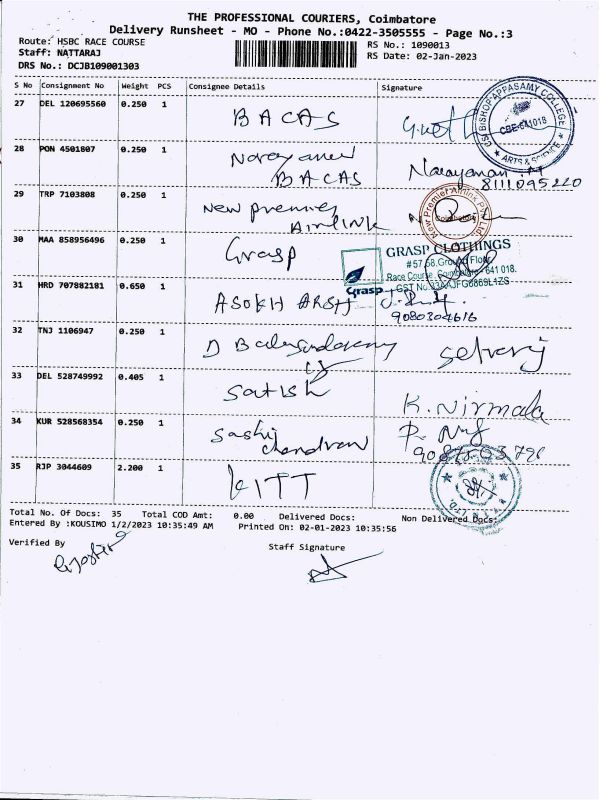 THE PROFESSIONAL COURIERS, Coimbatore
Delivery Runsheet - MO - Phone No.:0422-3505555 - Page No.:3
Route: HSBC RACE COURSE
RS No.: 1090013
Staff: NATTARAJ
RS Date: 02-Jan-2023
DRS No.: DCJB109001303
S No Consignment No Weight PCS Consignee Details Signature
27 DEL 120695560 0.250 1 BACAS
CSI BISHOP APPASAMY COLLEGE
CBE-641018
ARTS & SCIENCE
28 PON 4501807 0.250 1 Narayanan Narayanan
BACAS 8111095220
29 TRP 7103808 0.250 1 New premier
Airlink
New Premier Airlink Pvt Ltd
Coimbatore
30 MAA 858956496 0.250 1 Grasp
Grasp
GRASP CLOTHINGS
#57 58, Ground Floor,
Race Course, Coimbatore - 641 018.
GST No.
31 HRD 707882181 0.650 1 ASOKH ARSH
9080304616
32 TNJ 1106947 0.250 1 D Selvaraj
33 DEL 528749992 0.405 1 Satish K. Nirmala
34 KUR 528568354 0.250 1 Sashi
chandran
35 RJP 3044609 2.200 1 KITT
Total No. Of Docs: 35 Total COD Amt: 0.00 Delivered Docs: Non Delivered Docs:
Entered By :KOUSIMO 1/2/2023 10:35:49 AM Printed On: 02-01-2023 10:35:56
Verified By Staff Signature